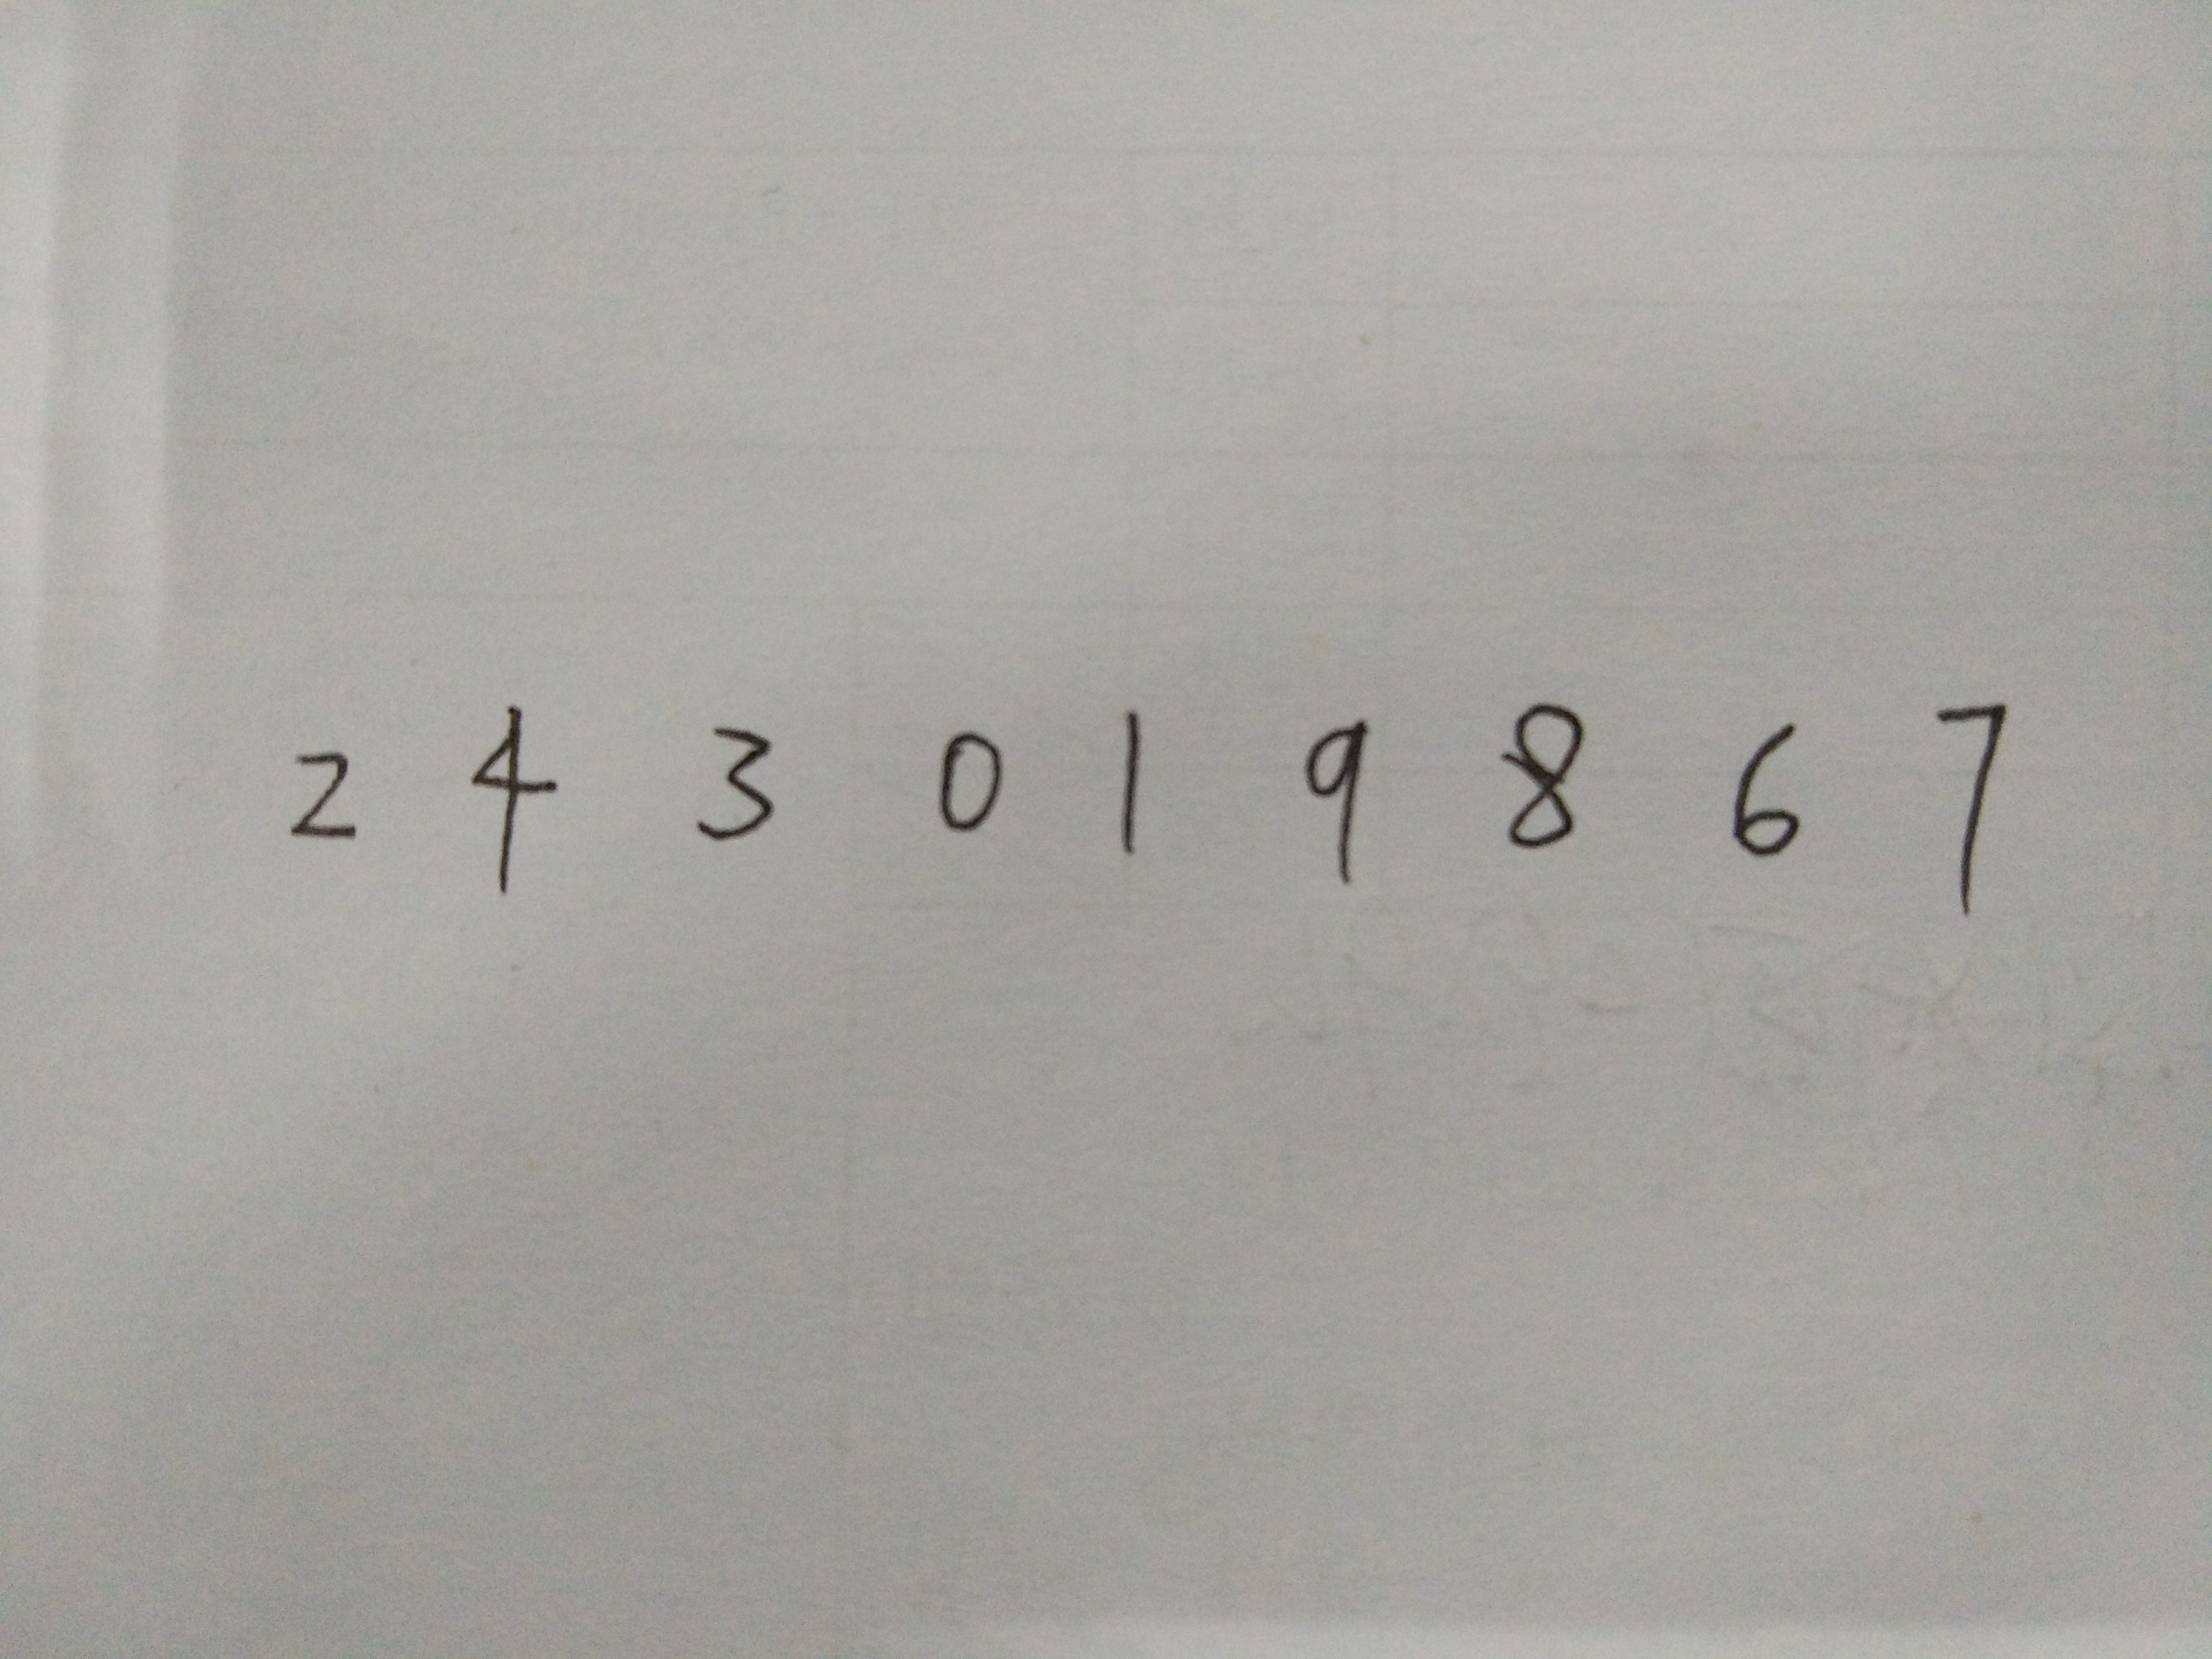 2 4 3 0 1 9 8 6 7